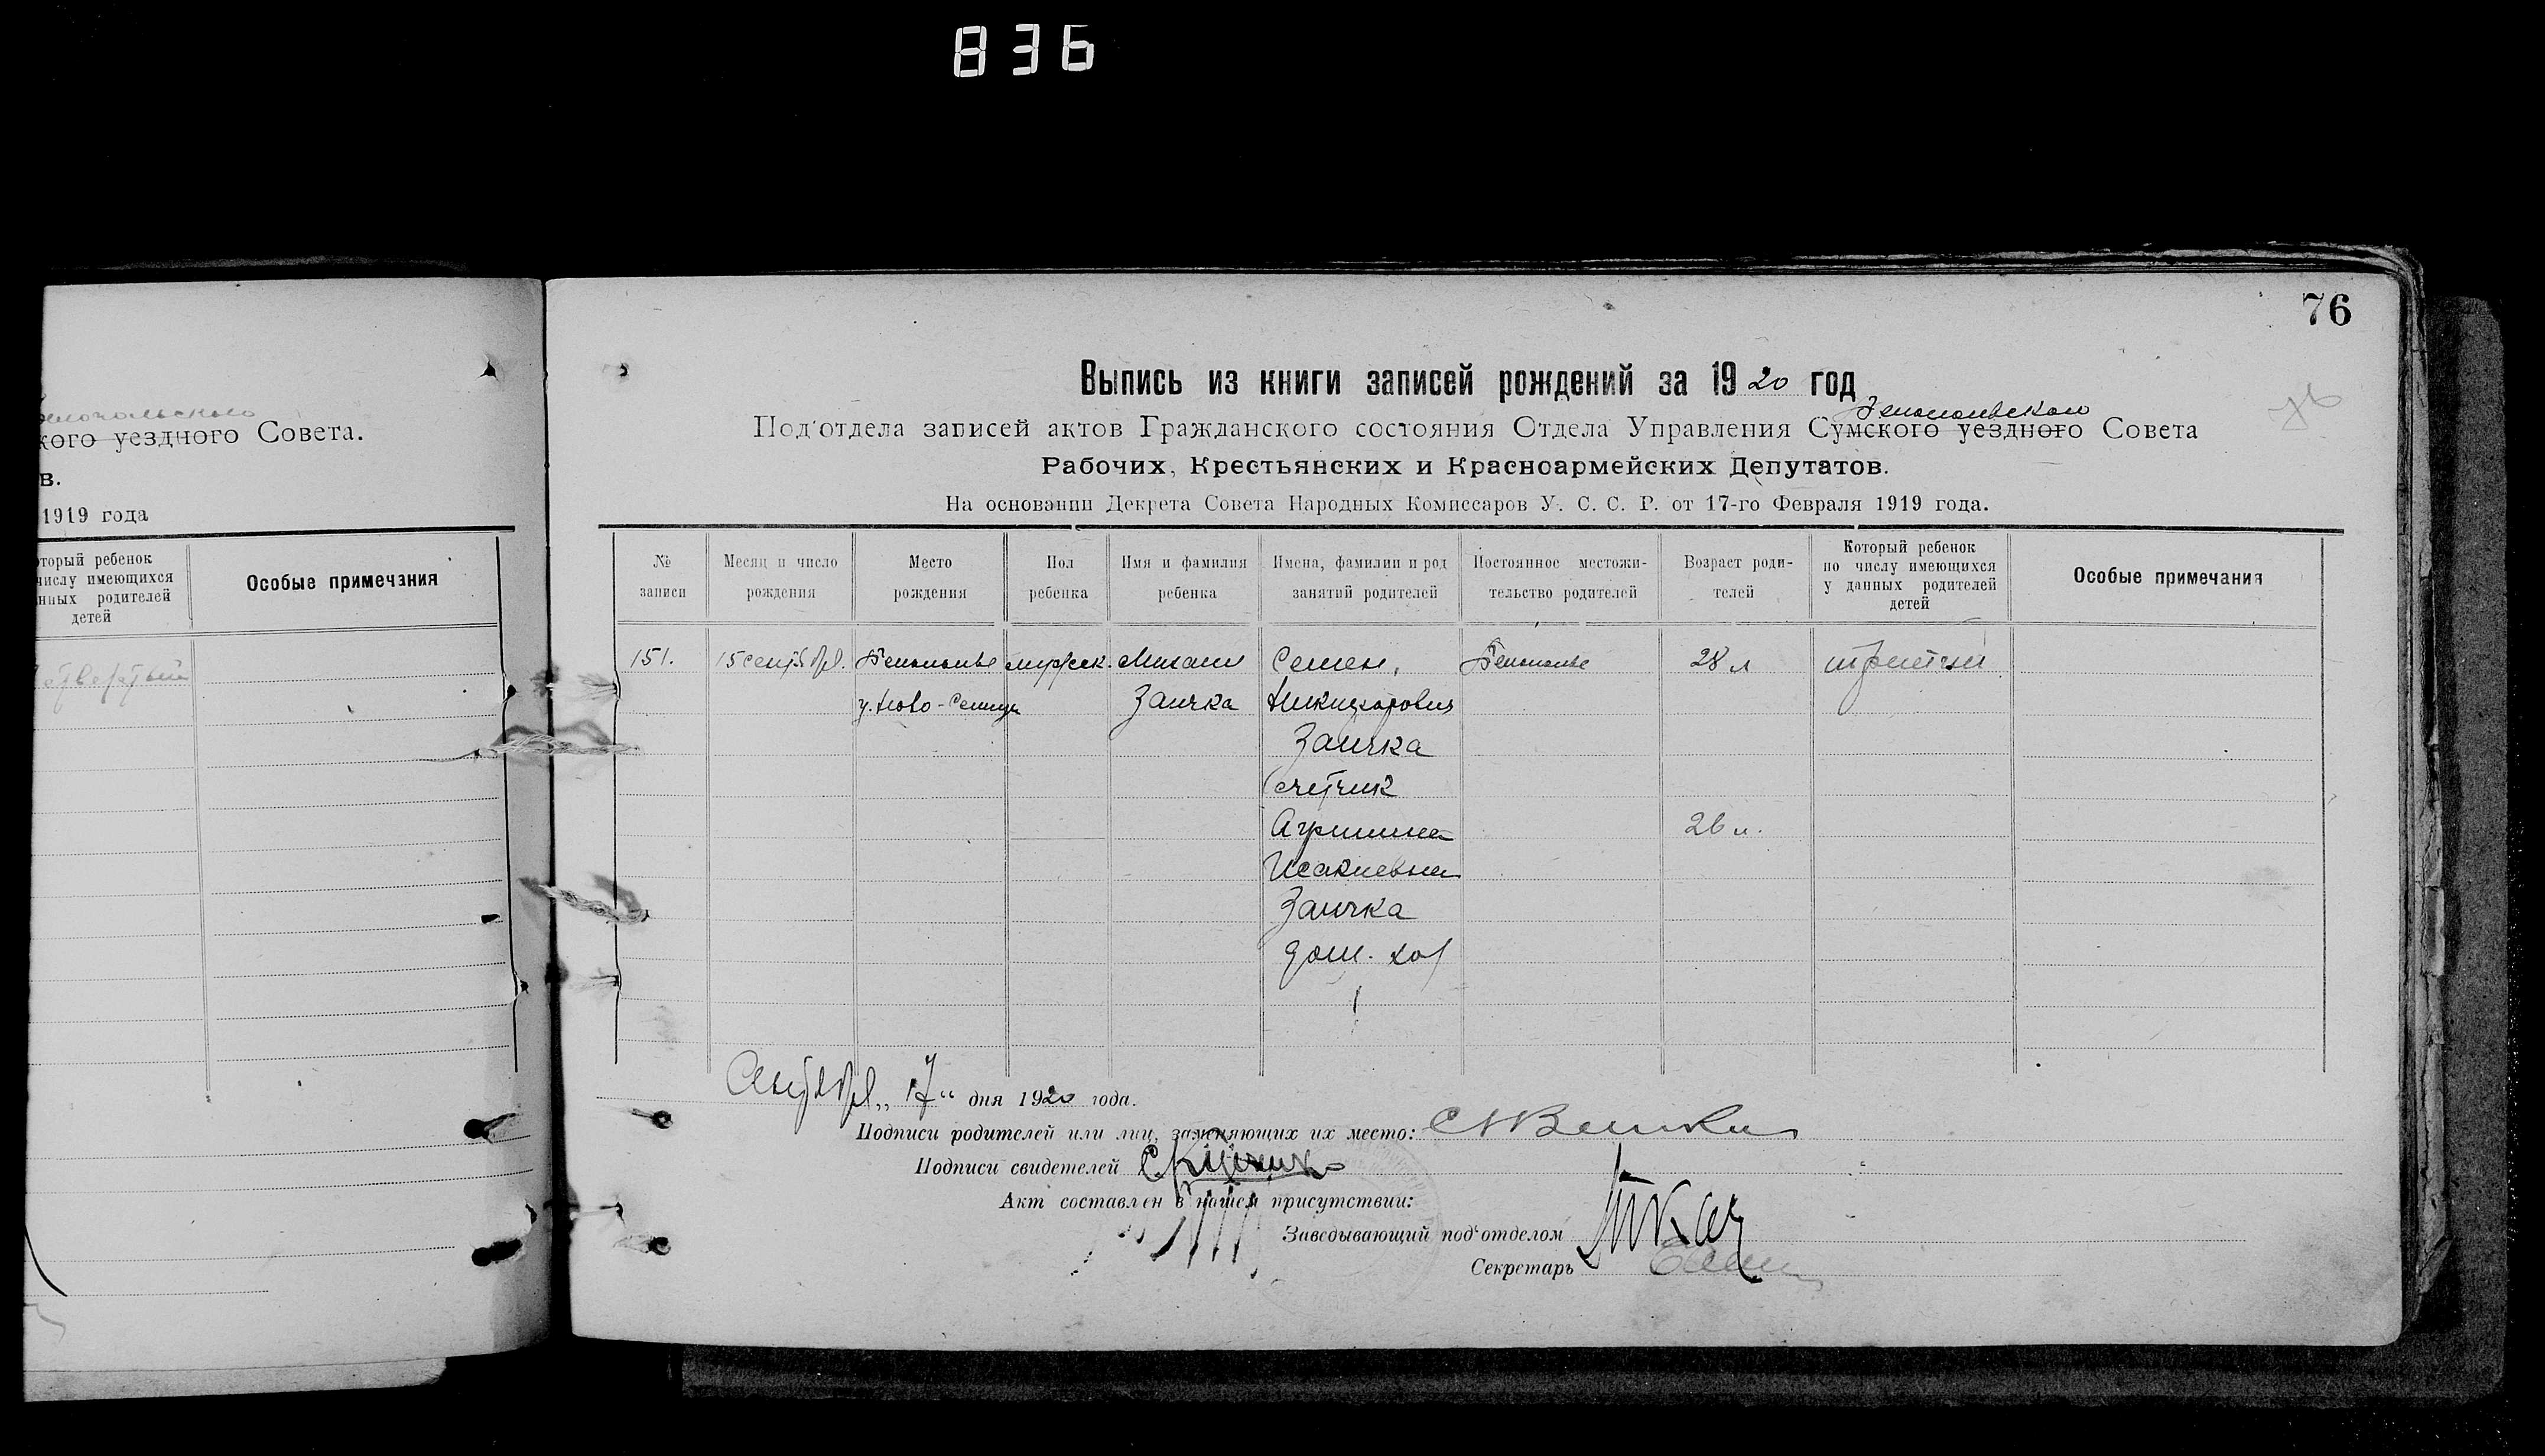 836
76
кого уездного Совета.
в.
1919 года
оторый ребенок
числу имеющихся
нных родителей
детей
Особые примечания
76
Выпись из книги записей рождений за 1920 год
Белопольского
Под'отдела записей актов Гражданского состояния Отдела Управления Сумского уездного Совета
Рабочих, Крестьянских и Красноармейских Депутатов.
На основании Декрета Совета Народных Комиссаров У. С. С. Р. от 17-го Февраля 1919 года.
№ записи
Месяц и число рождения
Место рождения
Пол ребенка
Имя и фамилия ребенка
Имена, фамилии и род занятий родителей
Постоянное местожительство родителей
Возраст родителей
Который ребенок по числу имеющихся у данных родителей детей
Особые примечания
151. 15 сентября. Белополье мужск. Михаил Семен, Белополье 28 л третий
Заичка
Заичка
счетчик
26 л.
Заичка
дом. хоз
Сентября „17“ дня 1920 года.
Подписи родителей или лиц, заменяющих их место:
Подписи свидетелей
Акт составлен в нашем присутствии:
Заведывающий под'отделом
Секретарь